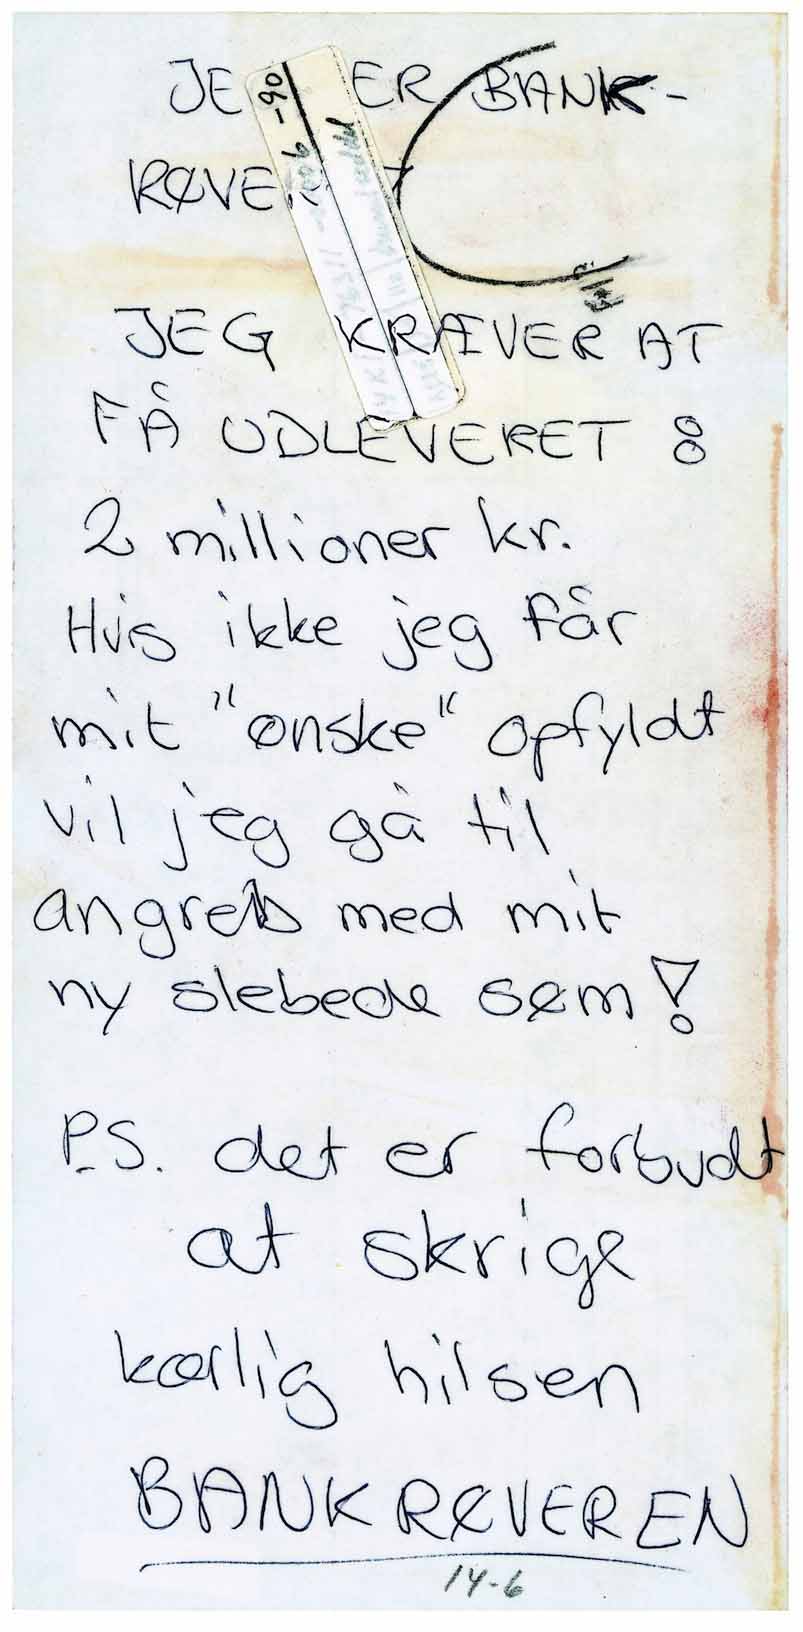 JE ER BANK-
RØVE
-90
JEG KRÆVER AT
FÅ UDLEVERET :
2 millioner kr.
Hvis ikke jeg får
mit "ønske" opfyldt
vil jeg gå til
angreb med mit
ny slebede søm!
P.S. det er forbudt
at skrige
kærlig hilsen
BANKRØVEREN
14-6